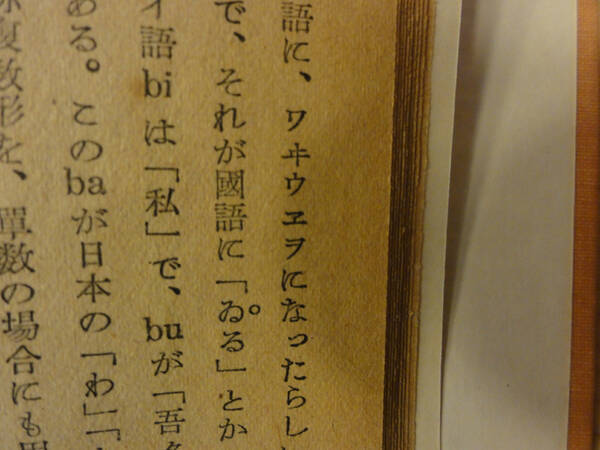 語に、ワヰウヱヲになったらし
で、それが國語に「ゐる」とか
イ語biは「私」で、buが「吾
ある。このbaが日本の「わ」「
複数形を、單数の場合にも